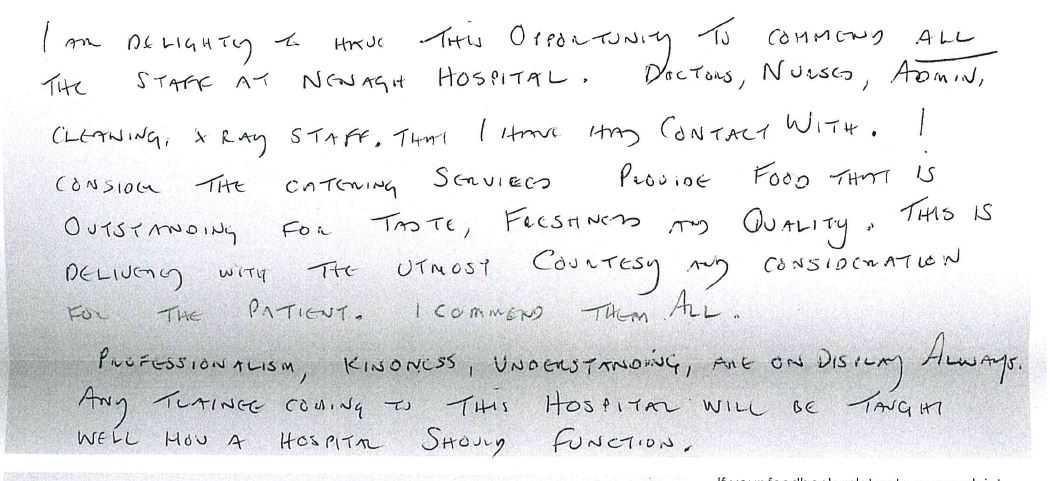 I AM DELIGHTED TO HAVE THIS OPPORTUNITY TO COMMEND ALL
THE STAFF AT NENAGH HOSPITAL. DOCTORS, NURSES, ADMIN,
CLEANING, X RAY STAFF. THAT I HAVE HAD CONTACT WITH. I
CONSIDER THE CATERING SERVICES PROVIDE FOOD THAT IS
OUTSTANDING FOR TASTE, FRESHNESS AND QUALITY. THIS IS
DELIVERED WITH THE UTMOST COURTESY AND CONSIDERATION
FOR THE PATIENT. I COMMEND THEM ALL.
PROFESSIONALISM, KINDNESS, UNDERSTANDING, ARE ON DISPLAY ALWAYS.
ANY TRAINEE COMING TO THIS HOSPITAL WILL BE TAUGHT
WELL HOW A HOSPITAL SHOULD FUNCTION.